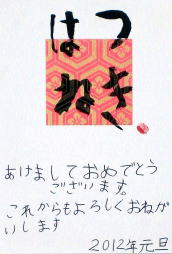 はね
つき
あけましておめでとう
ございます。
これからもよろしくおねが
いします
2012年元旦